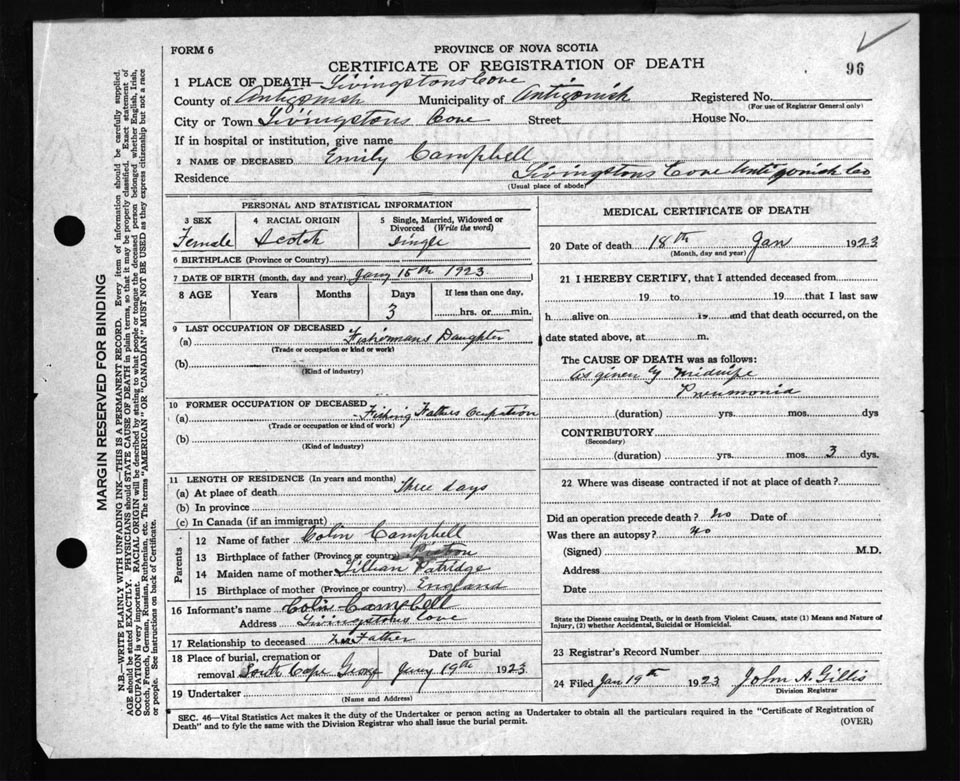 FORM 6
PROVINCE OF NOVA SCOTIA
CERTIFICATE OF REGISTRATION OF DEATH
96
1 PLACE OF DEATH— Livingstons Cove
County of Antigonish Municipality of Antigonish Registered No.
(For use of Registrar General only)
City or Town Livingstons Cove Street House No.
If in hospital or institution, give name
2 NAME OF DECEASED Emily Campbell
Residence Livingstons Cove Antigonish Co
(Usual place of abode)
PERSONAL AND STATISTICAL INFORMATION
3 SEX 4 RACIAL ORIGIN 5 Single, Married, Widowed or Divorced (Write the word)
Female Scotch Single
6 BIRTHPLACE (Province or Country)
7 DATE OF BIRTH (month, day and year) Jany 15th 1923
8 AGE Years Months Days If less than one day,
3 hrs. or min.
9 LAST OCCUPATION OF DECEASED
(a) Fishermans Daughter
(Trade or occupation or kind of work)
(b)
(Kind of industry)
10 FORMER OCCUPATION OF DECEASED
(a) Fishing Fathers Ocupation
(Trade or occupation or kind of work)
(b)
(Kind of industry)
11 LENGTH OF RESIDENCE (In years and months)
(a) At place of death Three days
(b) In province
(c) In Canada (if an immigrant)
Parents
12 Name of father Colin Campbell
13 Birthplace of father (Province or country)
14 Maiden name of mother Lillian Patridge
15 Birthplace of mother (Province or country) England
16 Informant's name Colin Campbell
Address Livingstons Cove
17 Relationship to deceased Father
18 Place of burial, cremation or removal South Cape George
Date of burial
Jany 19th 1923
19 Undertaker
(Name and Address)
MEDICAL CERTIFICATE OF DEATH
20 Date of death 18th Jan 1923
(Month, day and year)
21 I HEREBY CERTIFY, that I attended deceased from
19 to 19 that I last saw
h alive on 19 and that death occurred, on the
date stated above, at m.
The CAUSE OF DEATH was as follows:
As given by Midwife
Pneumonia
(duration) yrs. mos. dys
CONTRIBUTORY
(Secondary)
(duration) yrs. mos. 3 dys.
22 Where was disease contracted if not at place of death?
Did an operation precede death? No Date of
Was there an autopsy? No
(Signed) M.D.
Address
Date
State the Disease causing Death, or in death from Violent Causes, state (1) Means and Nature of
Injury, (2) whether Accidental, Suicidal or Homicidal.
23 Registrar's Record Number
24 Filed Jan 19th 1923 John A. Gillis
Division Registrar
SEC. 46—Vital Statistics Act makes it the duty of the Undertaker or person acting as Undertaker to obtain all the particulars required in the "Certificate of Registration of
Death" and to fyle the same with the Division Registrar who shall issue the burial permit.
(OVER)
MARGIN RESERVED FOR BINDING
N.B.—WRITE PLAINLY WITH UNFADING INK—THIS IS A PERMANENT RECORD. Every item of information should be carefully supplied.
AGE should be stated EXACTLY. PHYSICIANS should STATE CAUSE OF DEATH in plain terms, so that it may be properly classified. Exact statement of
OCCUPATION is very important. RACIAL ORIGIN will be described by stating to what people or tongue the deceased person belonged whether English, Irish,
Scotch, French, German, Russian, Ruthenian, etc. The terms "AMERICAN" OR "CANADIAN" MUST NOT BE USED as they express citizenship but not a race
or people. See instructions on back of Certificate.